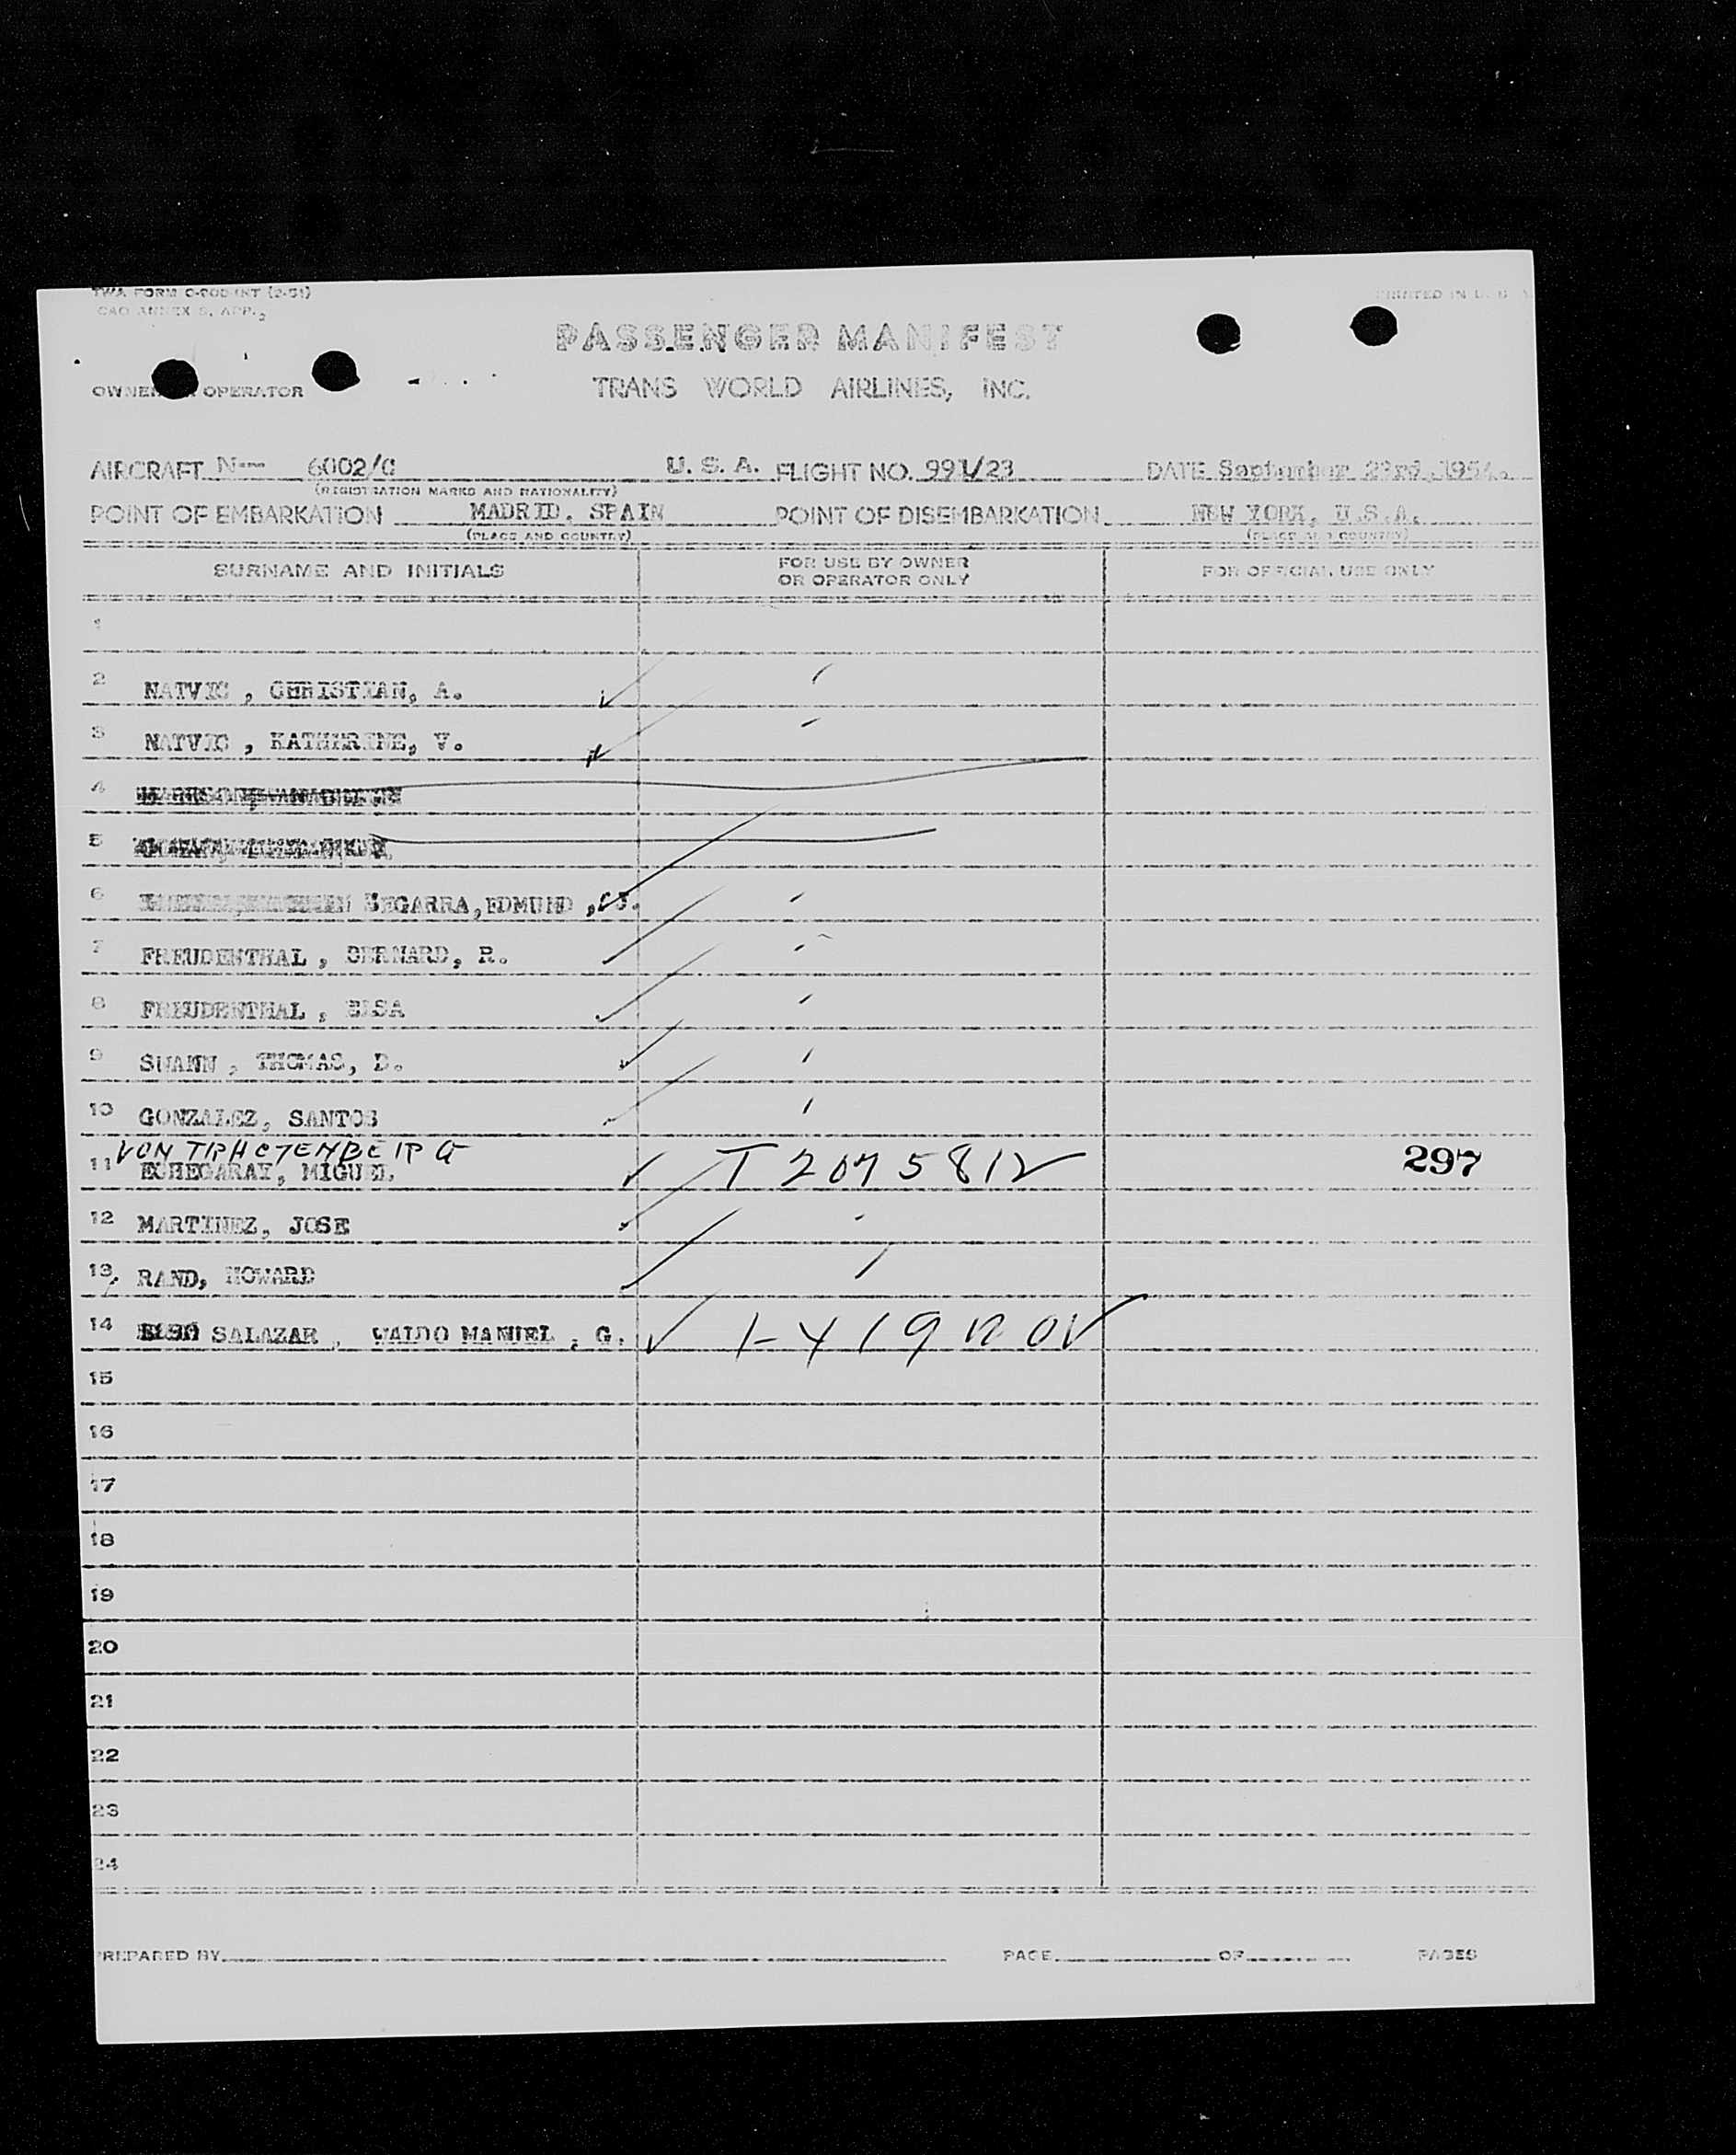 TWA FORM
PRINTED IN U. S.
PASSENGER MANIFEST
OWNER OPERATOR
TRANS WORLD AIRLINES, INC.
AIRCRAFT N-- 6002/C U. S. A. FLIGHT NO. 991/23 DATE September 23rd, 1954.
(REGISTRATION MARKS AND NATIONALITY)
POINT OF EMBARKATION MADRID. SPAIN POINT OF DISEMBARKATION NEW YORK, U.S.A.
(PLACE AND COUNTRY) (PLACE AND COUNTRY)
SURNAME AND INITIALS FOR USE BY OWNER FOR OFFICIAL USE ONLY
OR OPERATOR ONLY
1
2 NATVIG , CHRISTIAN, A.
3 NATVIG , KATHERINE, V.
4
5
6 SEGARRA, EDMUND
7 FREUDENTHAL , BERNARD, R.
8 FREUDENTHAL , ELSA
9 SWANN , THOMAS, D.
10 GONZALEZ, SANTOS
VON
11 ECHEGARAY, MIGUEL T 2075812 297
12 MARTINEZ, JOSE
13 RAND, HOWARD
14 SALAZAR , WALDO MANUEL , G.
15
16
17
18
19
20
21
22
23
24
PREPARED BY PAGE OF PAGES